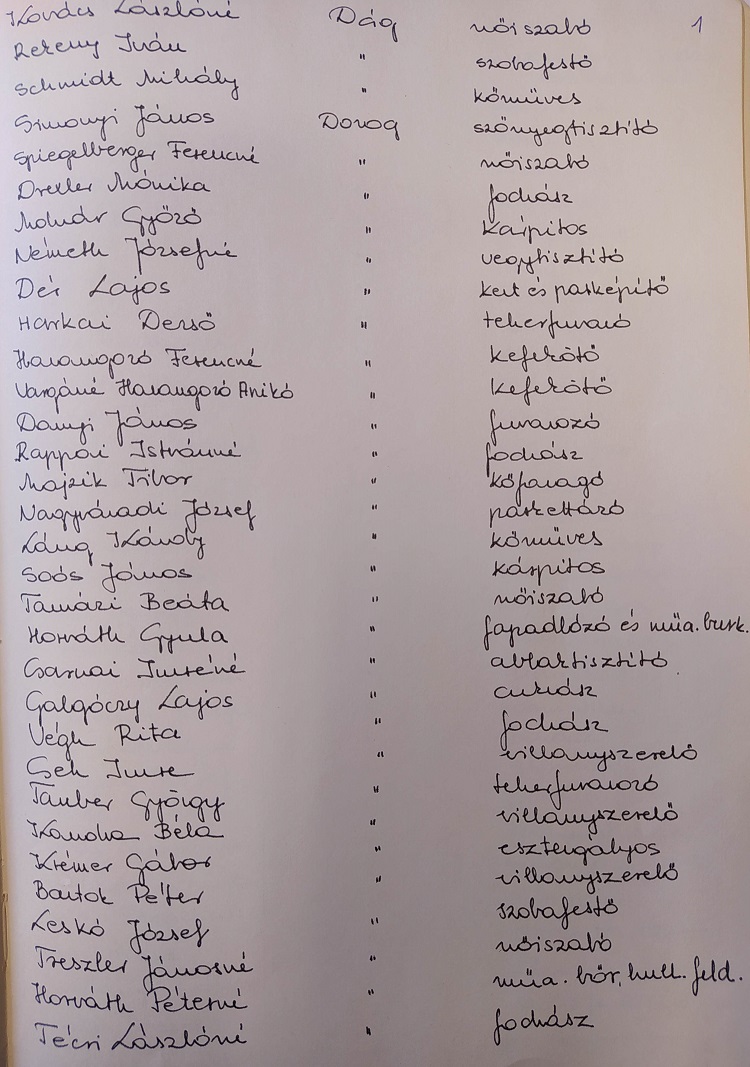 Kovács Lászlóné Dág nőiszabó 1
Rekeny Iván " szobafestő
Schmidt Mihály " kőműves
Simonyi János Dorog szőnyegtisztító
Spiegelberger Ferencné " nőiszabó
Drexler Mónika " fodrász
Molnár Győző " Kárpitos
Németh Józsefné " vegytisztító
Dér Lajos " kert és parképítő
Harkai Dezső " teherfuvaró
Harangozó Ferencné " kefekötő
Vargáné Harangozó Anikó " kefekötő
Danyi János " fuvarozó
Rappai Istvánné " fodrász
Majzik Tibor " kőfaragó
Nagyváradi József " parkettázó
Láng Károly " kőműves
Soós János " kárpitos
Tamázi Beáta " nőiszabó
Horváth Gyula " fapadlózó és műa. burk.
Garnai Imréné " ablaktisztító
Galgóczy Lajos " cukrász
Végh Rita " fodrász
Seh Imre " villanyszerelő
Tauber György " teherfuvarozó
Kandra Béla " villanyszerelő
Krémer Gábor " esztergályos
Bartok Péter " villanyszerelő
Leskó József " szobafestő
Treszler Jánosné " nőiszabó
Horváth Péterné " műa. bőr, hull. feld.
Técsi Lászlóné " fodrász